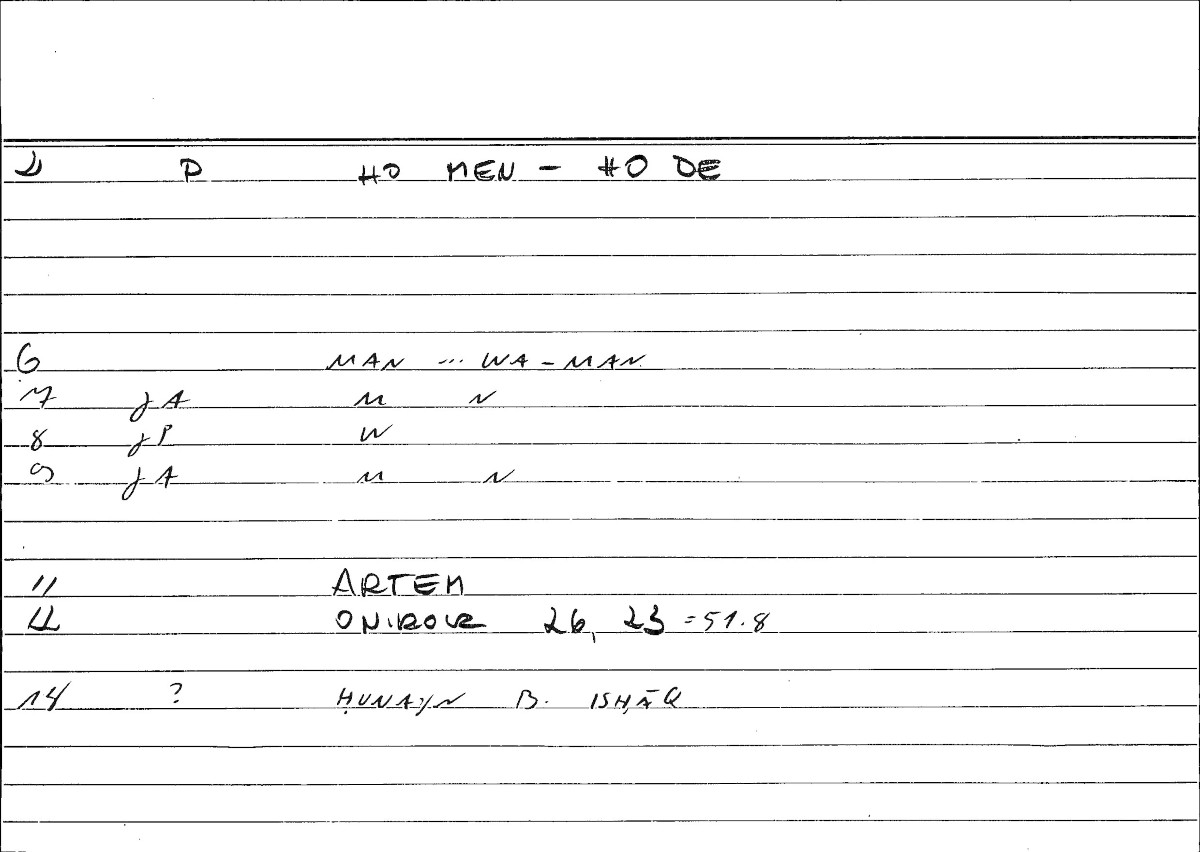 2 P HO MEN - HO DE
6 MAN ... WA-MAN
7 JA M N
8 JP W
9 JA M N
11 ARTEM
12 ONIROCR 26, 23 = 51.8
14 ? ḤUNAYN B. ISḤĀQ